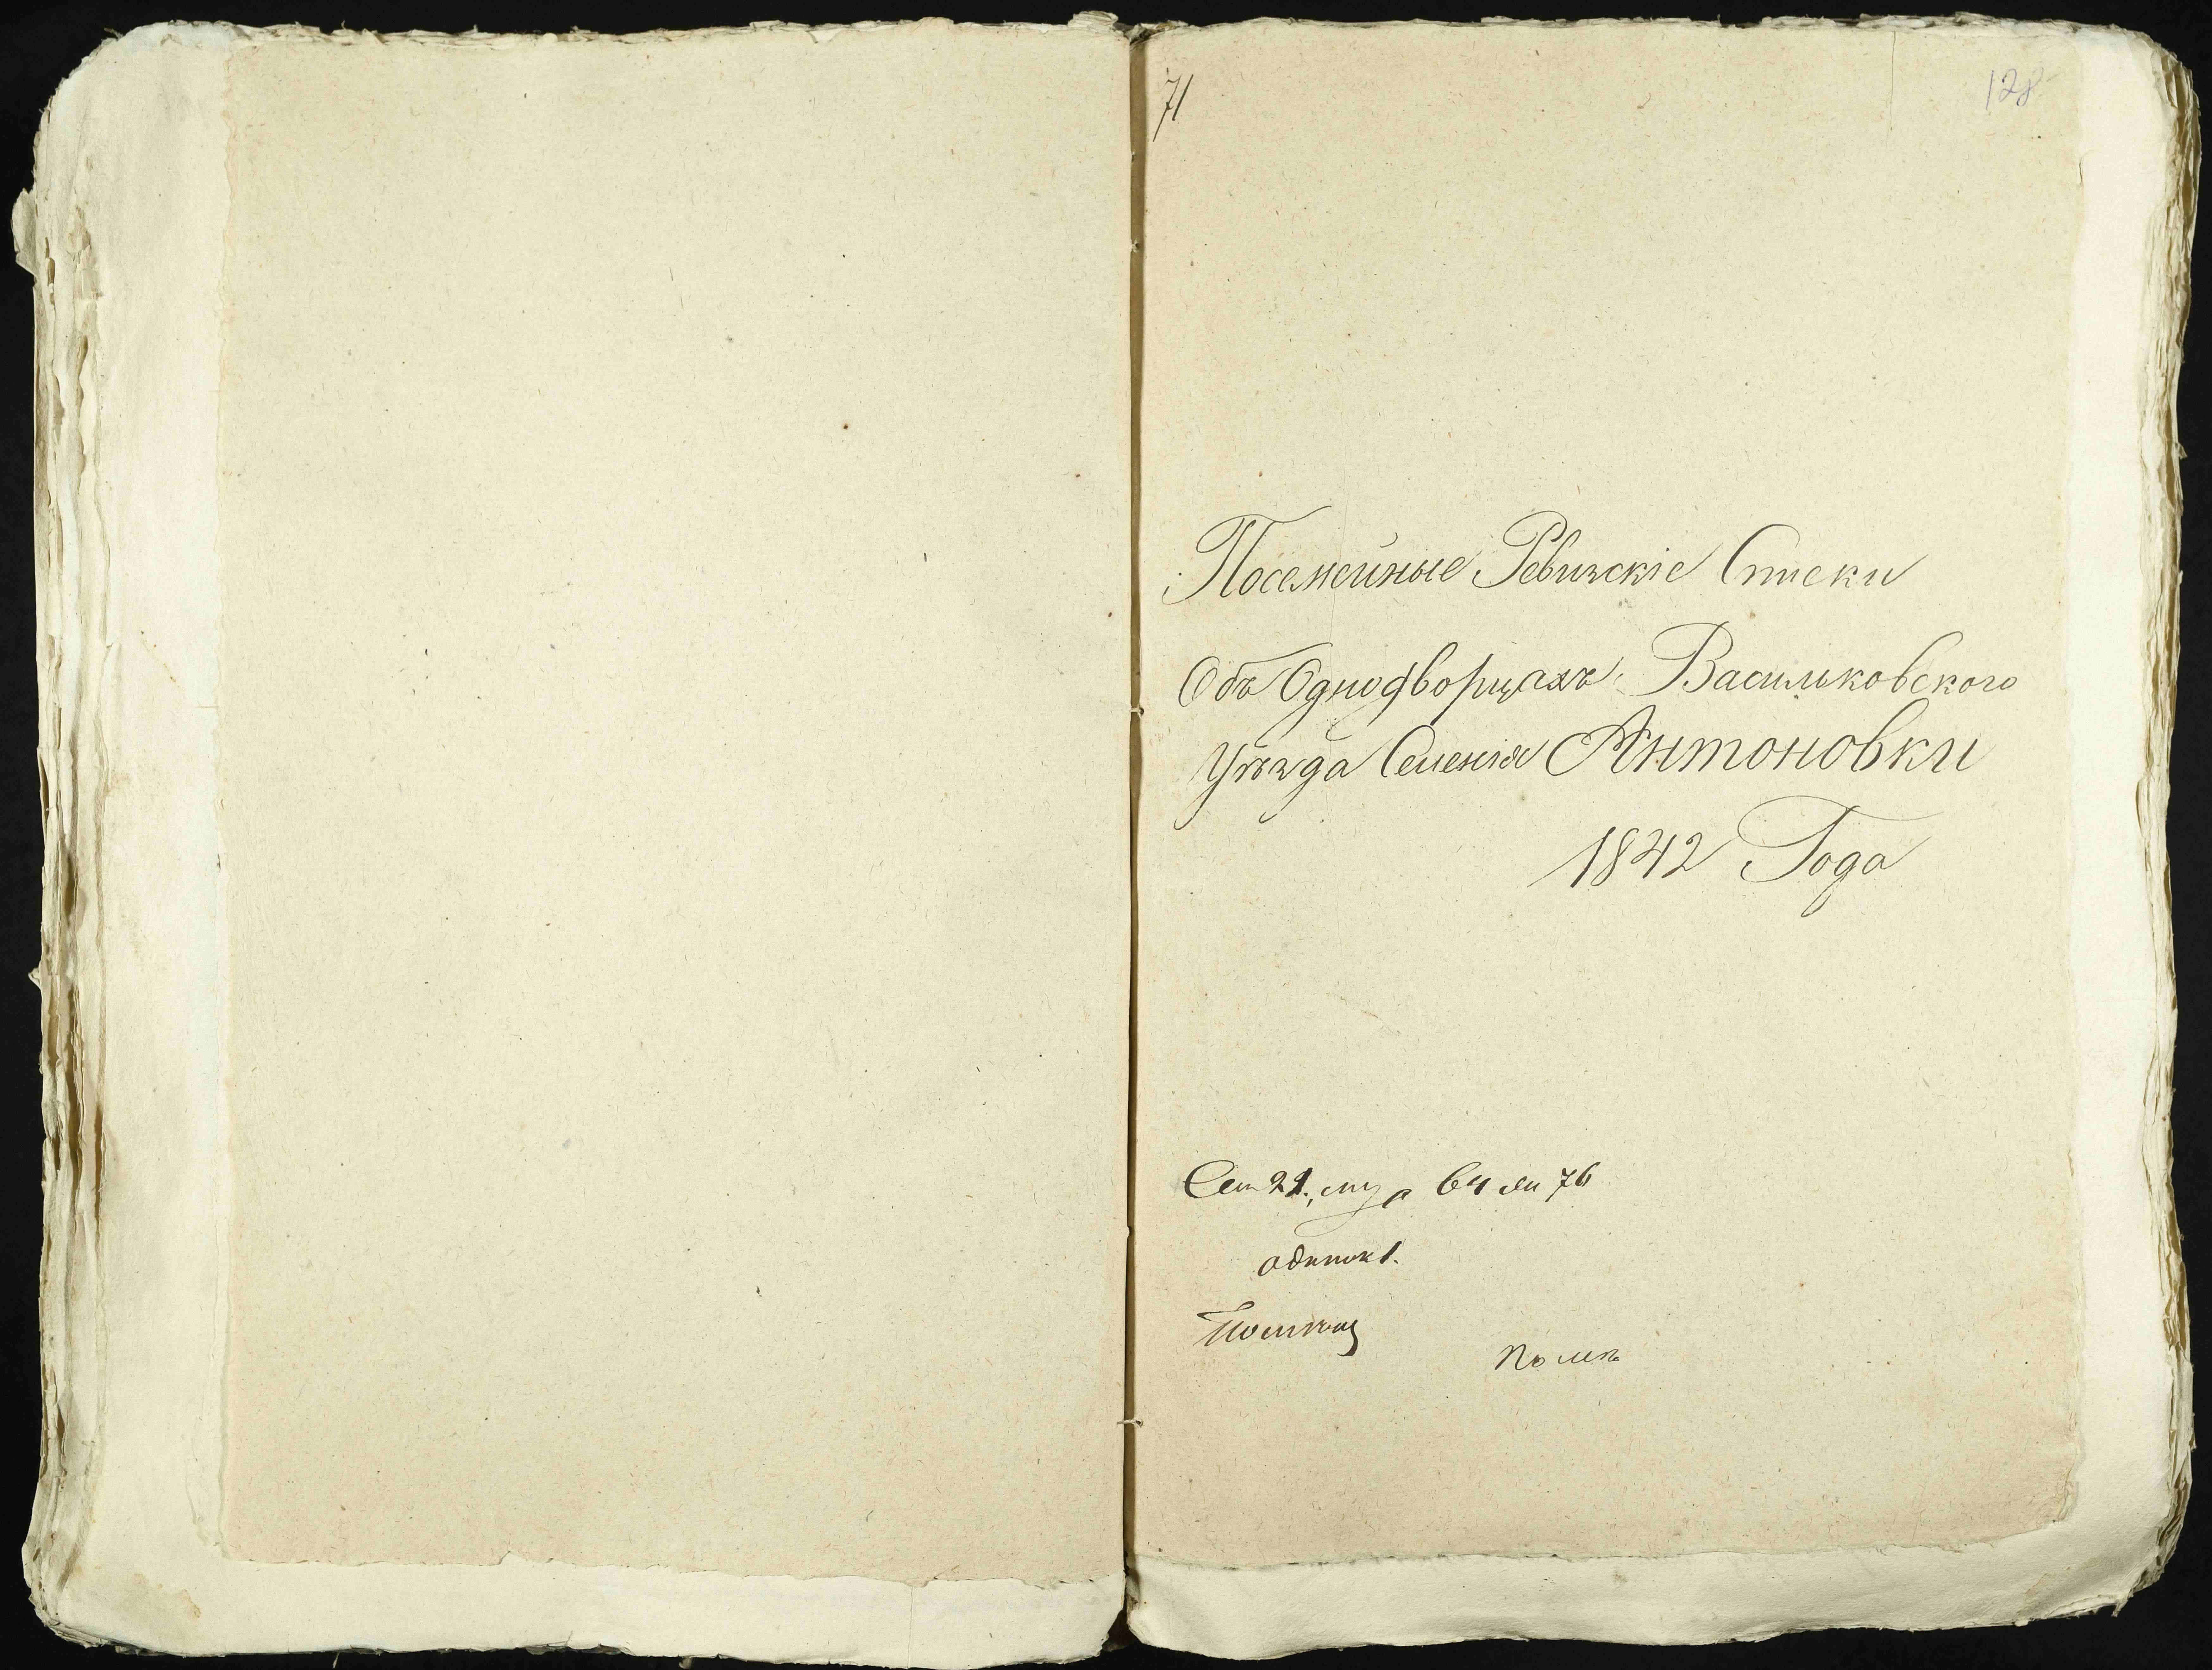 71
128
Посемейные Ревизскіе Списки
Объ Однодворцахъ Васильковского
Уѣзда Селенія Антоновки
1842 Года
Сем 21. муж 64 жен 76
одинок 1.
Помѣщ